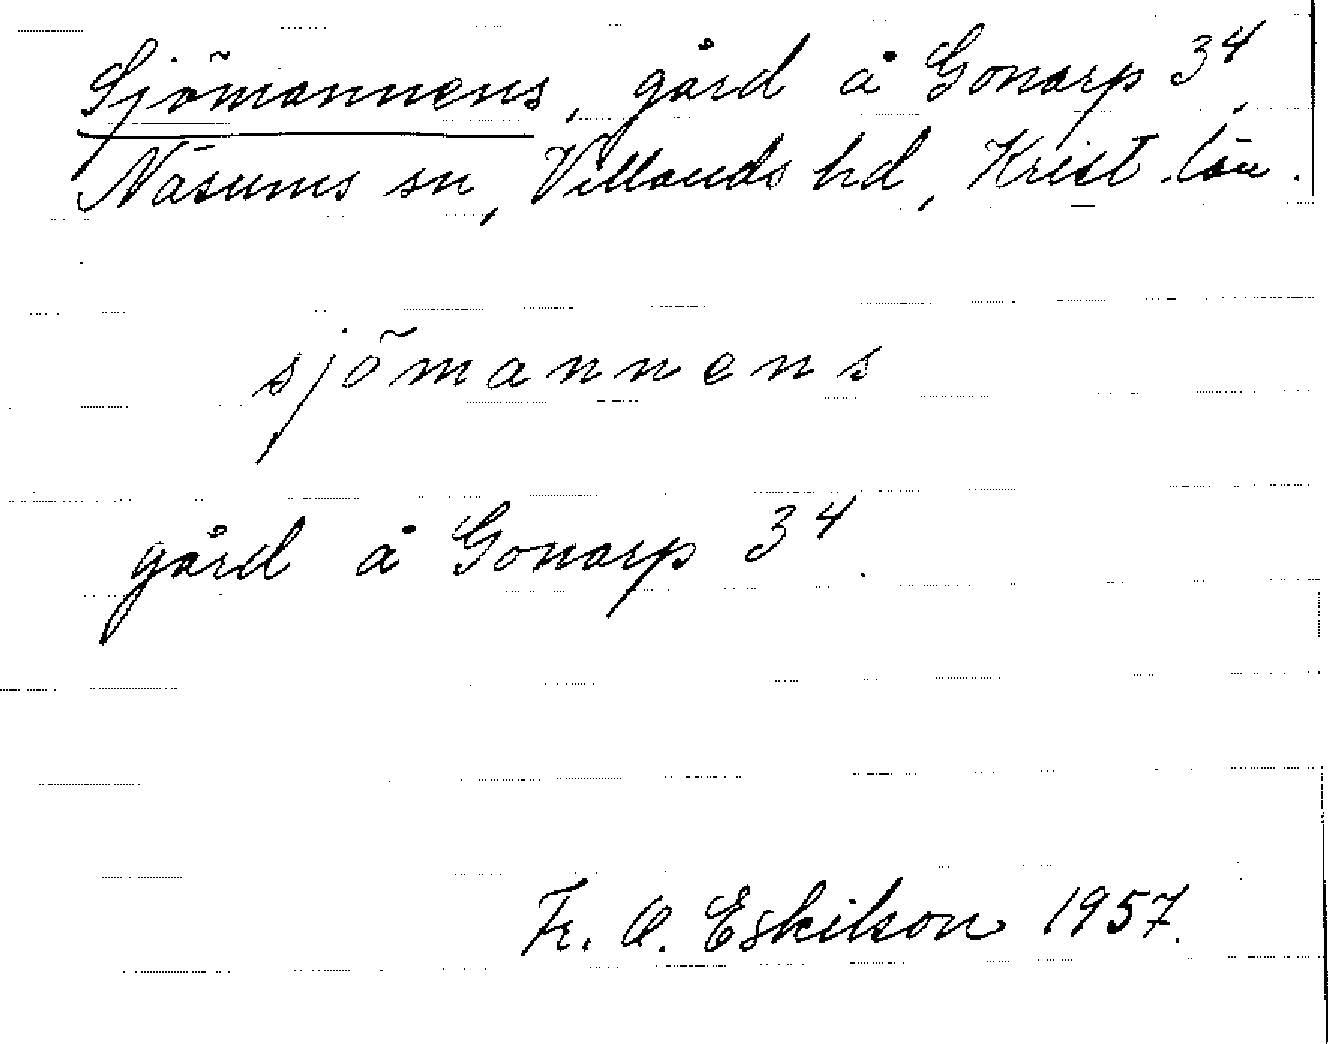 Sjömannens, gård å Gonarp 3⁴,
Näsums sn, Villands hd, Krist. län.
sjömannens
gård å Gonarp 3⁴.
Fr. O. Eskilson 1957.